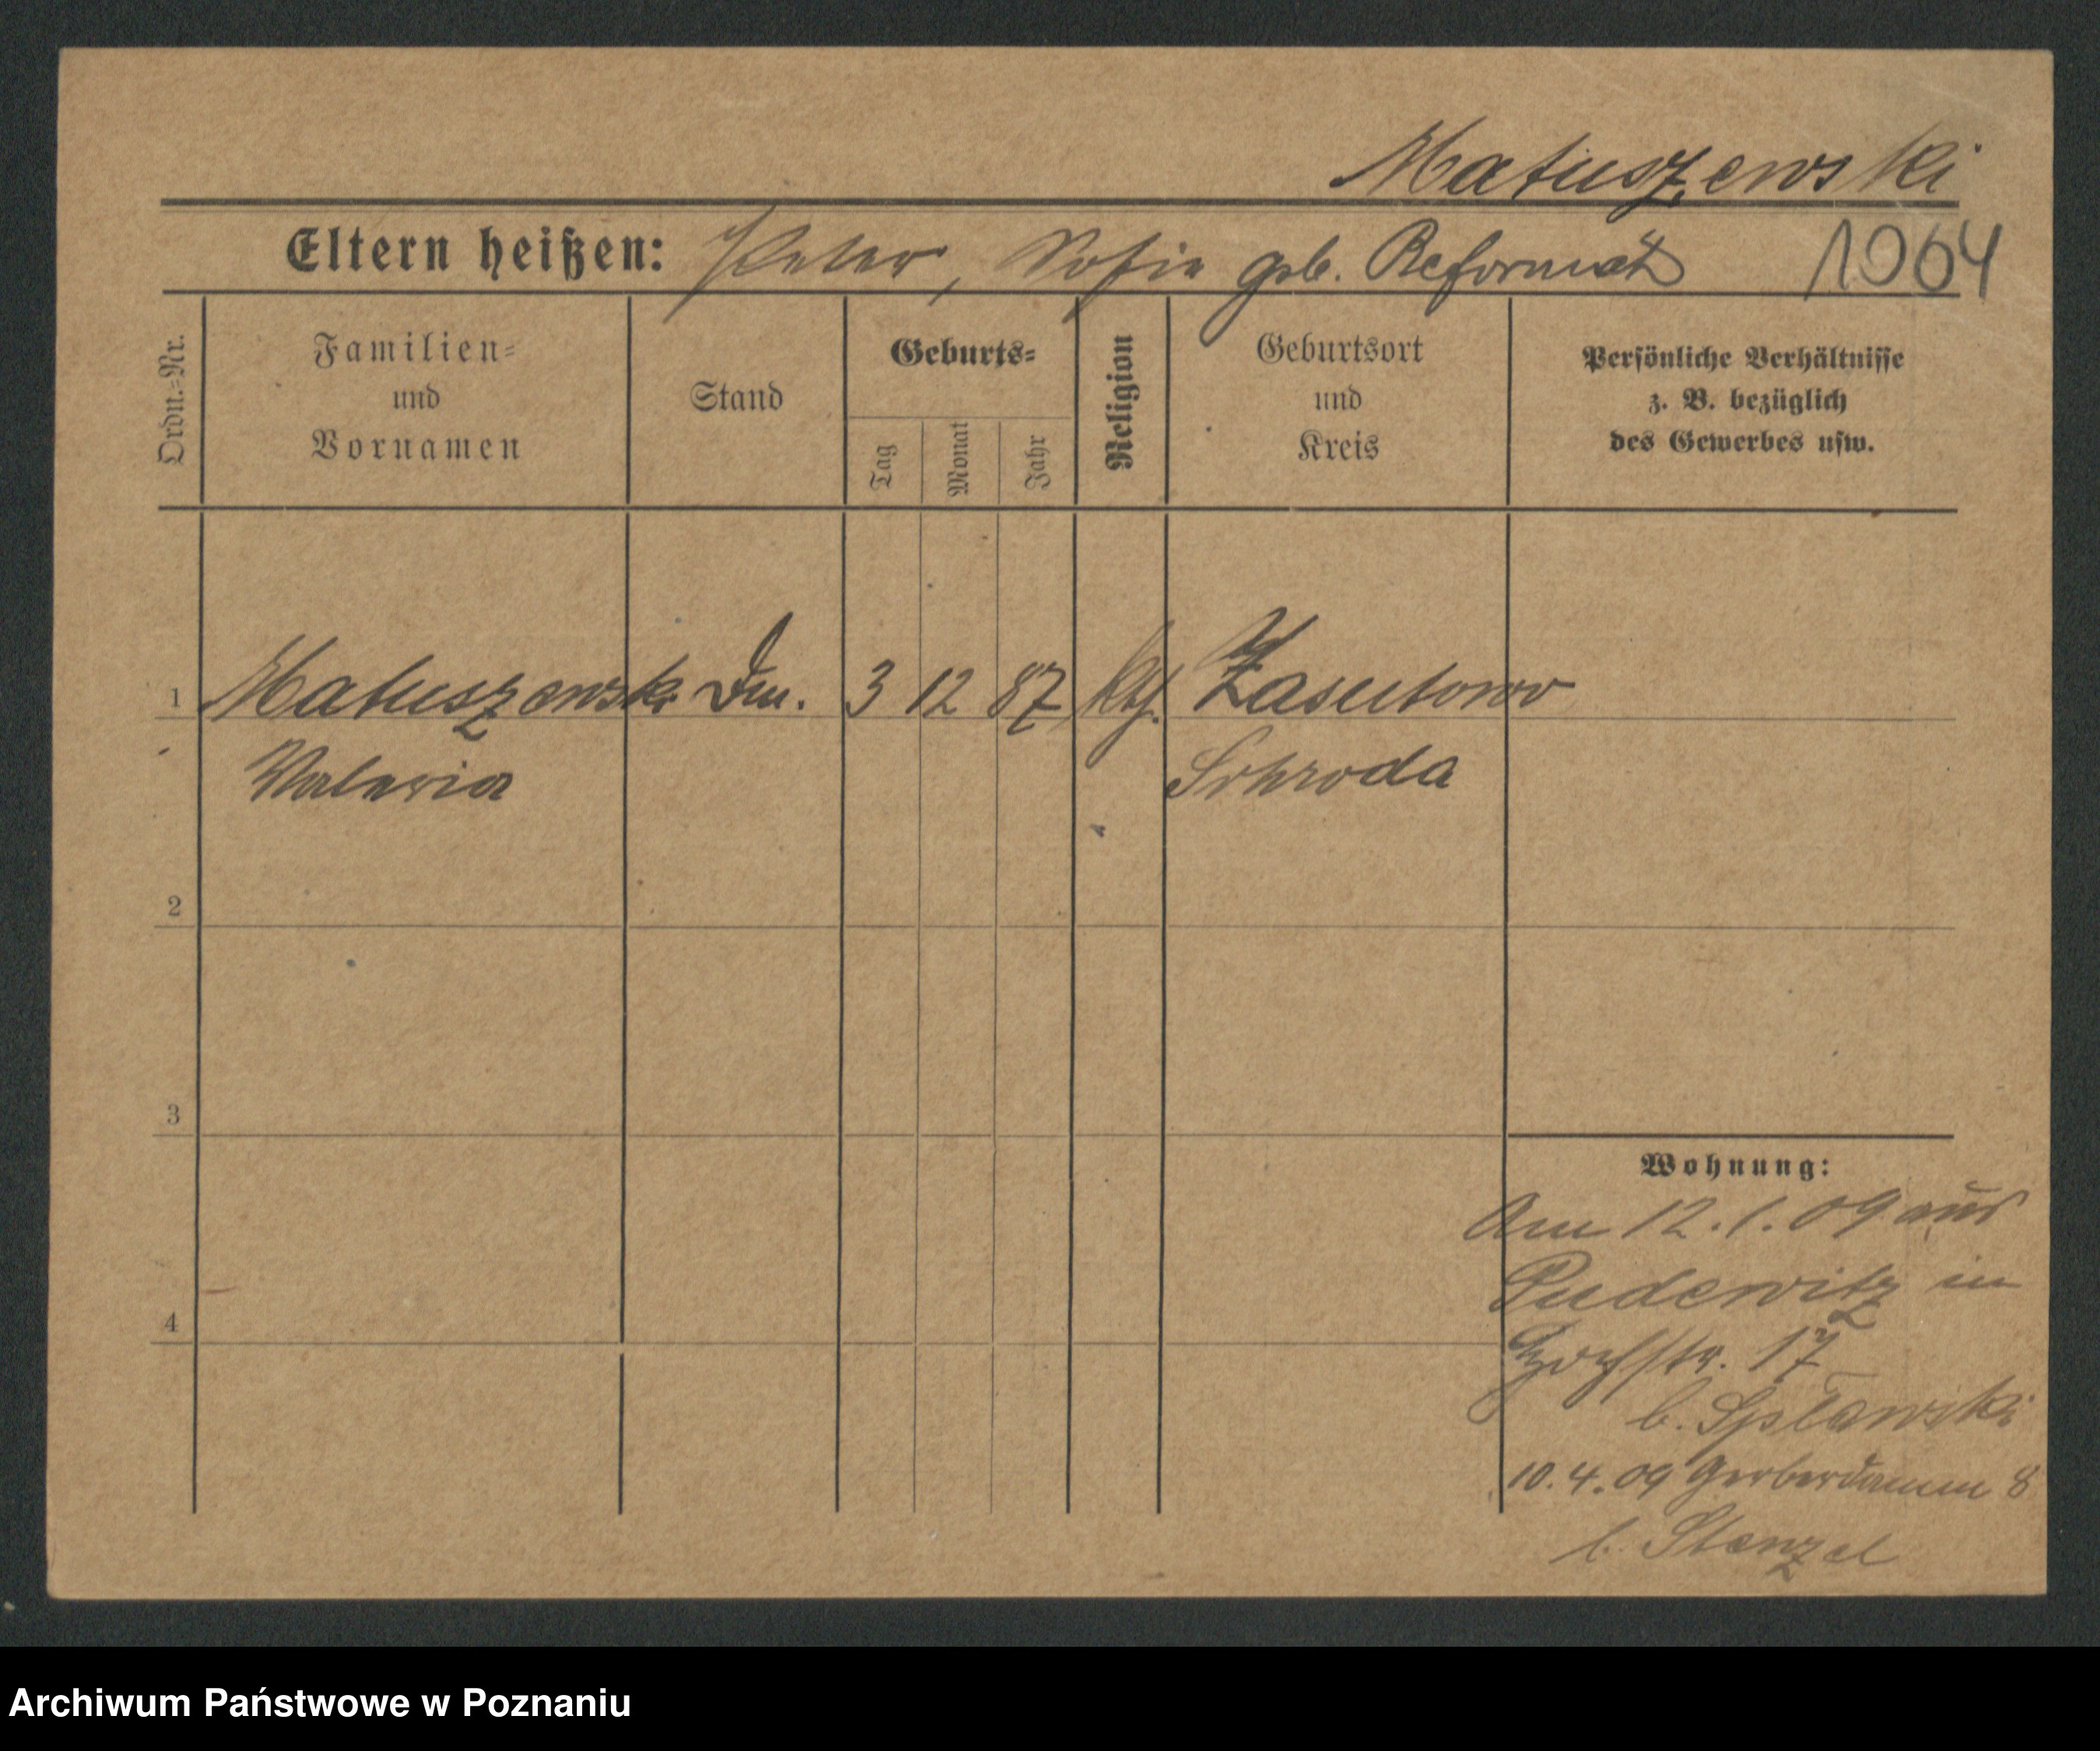 Matuszewski
Eltern heißen: Peter, Sofie geb. Reformat 1064
Ordn.=Nr.
Familien=
und
Vornamen
Stand
Geburts=
Tag
Monat
Jahr
Religion
Geburtsort
und
Kreis
Persönliche Verhältnisse
z. B. bezüglich
des Gewerbes usw.
1 Matuszewski 3 12 87 kth. Zasutowo
Valeria Schroda
2
3
4
Wohnung:
Am 12.1.09 aus
Pudewitz in
17
b. Splawski
10.4.09 Gerberdamm 8
b. Stenzel
Archiwum Państwowe w Poznaniu